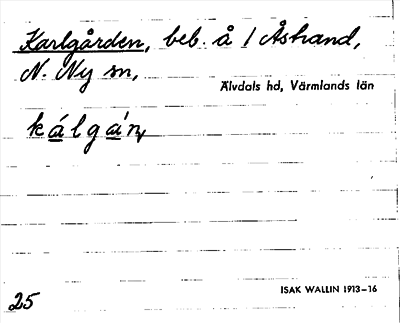 Karlgården, beb. å 1 Åstrand,
N. Ny sn,
Älvdals hd, Värmlands län
kálgáɳ
ISAK WALLIN 1913–16
25